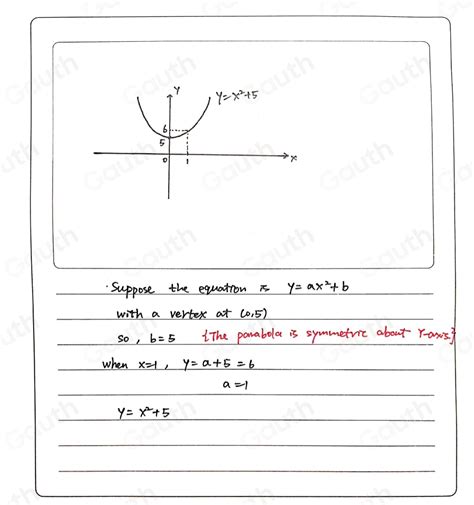 y
y=x²+5
6
5
0 1 x
·Suppose the equation is y=ax²+b
with a vertex at (0,5)
so, b=5 {The parabola is symmetric about Y-axis}
when x=1, y=a+5=6
a=1
y=x²+5
Gauth